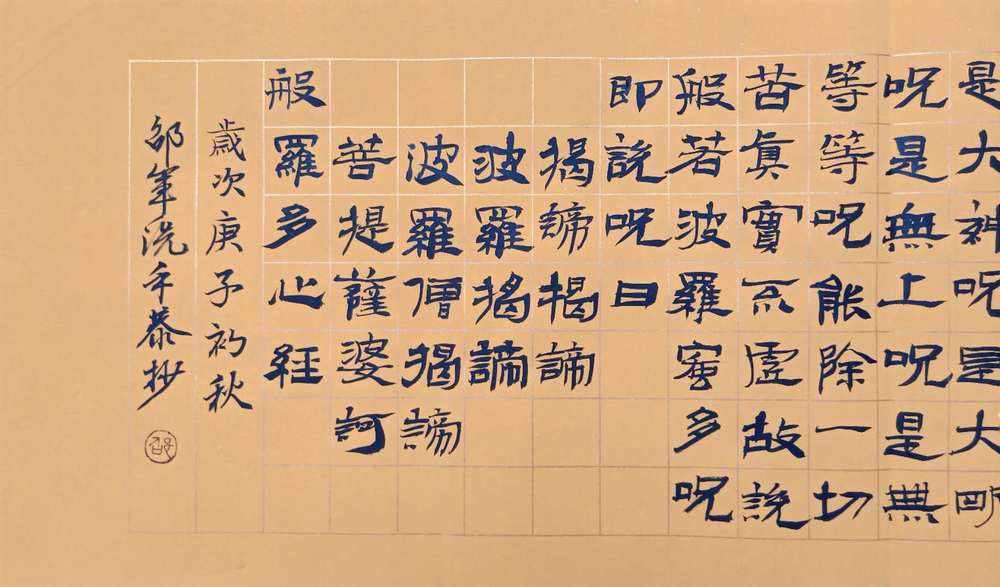 是大神呪是大明
呪是無上呪是無
等等呪能除一切
苦眞實不虛故說
般若波羅蜜多呪
即說呪曰
揭諦揭諦
波羅揭諦
波羅僧揭諦
菩提薩婆訶
般羅多心經
歲次庚子初秋
邵軍洗手恭抄